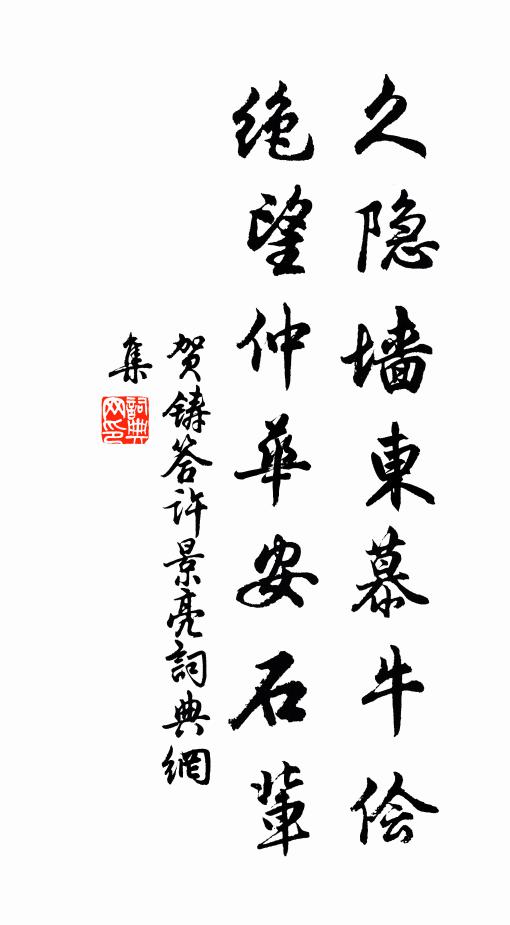 久隐墙東慕牛侩
绝望仲華安石輩
贺鑄答许景亮詞典網
集
詞典
网印